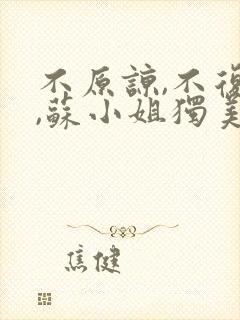 不原諒,不復
,蘇小姐獨美
焦健